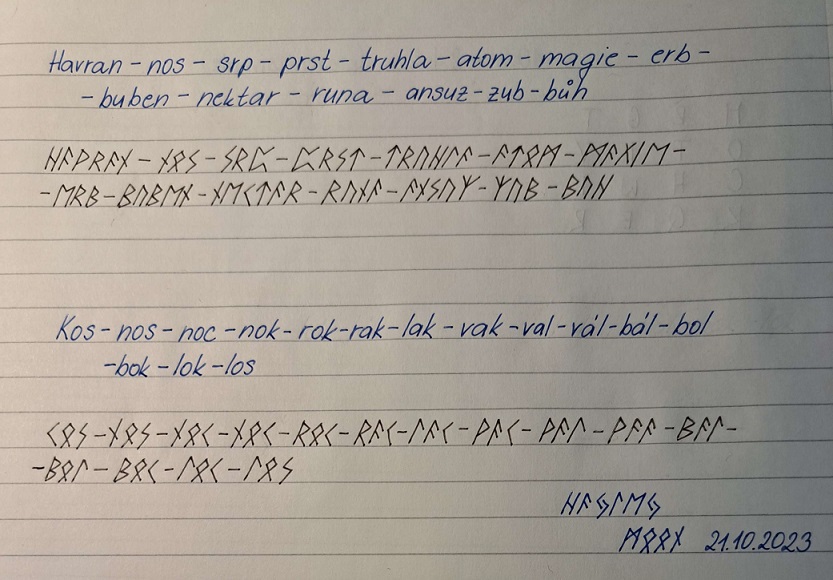 Havran - nos - srp - prst - truhla - atom - magie - erb -
- buben - nektar - runa - ansuz - zub - bůh
ᚺᚨᚹᚱᚨᚾ - ᚾᛟᛊ - ᛊᚱᛈ - ᛈᚱᛊᛏ - ᛏᚱᚢᚺᛚᚨ - ᚨᛏᛟᛗ - ᛗᚨᚷᛁᛖ -
- ᛖᚱᛒ - ᛒᚢᛒᛖᚾ - ᚾᛖᚲᛏᚨᚱ - ᚱᚢᚾᚨ - ᚨᚾᛊᚢᛉ - ᛉᚢᛒ - ᛒᚢᚺ
Kos - nos - noc - nok - rok - rak - lak - vak - val - vál - bál - bol
- bok - lok - los
ᚲᛟᛊ - ᚾᛟᛊ - ᚾᛟᚲ - ᚾᛟᚲ - ᚱᛟᚲ - ᚱᚨᚲ - ᛚᚨᚲ - ᚹᚨᚲ - ᚹᚨᛚ - ᚹᚨᚨ - ᛒᚨᛚ -
- ᛒᛟᛚ - ᛒᛟᚲ - ᛚᛟᚲ - ᛚᛟᛊ
ᚺᚨᛃᛚᛖᛃ
ᛗᛟᛟᚾ 21.10.2023